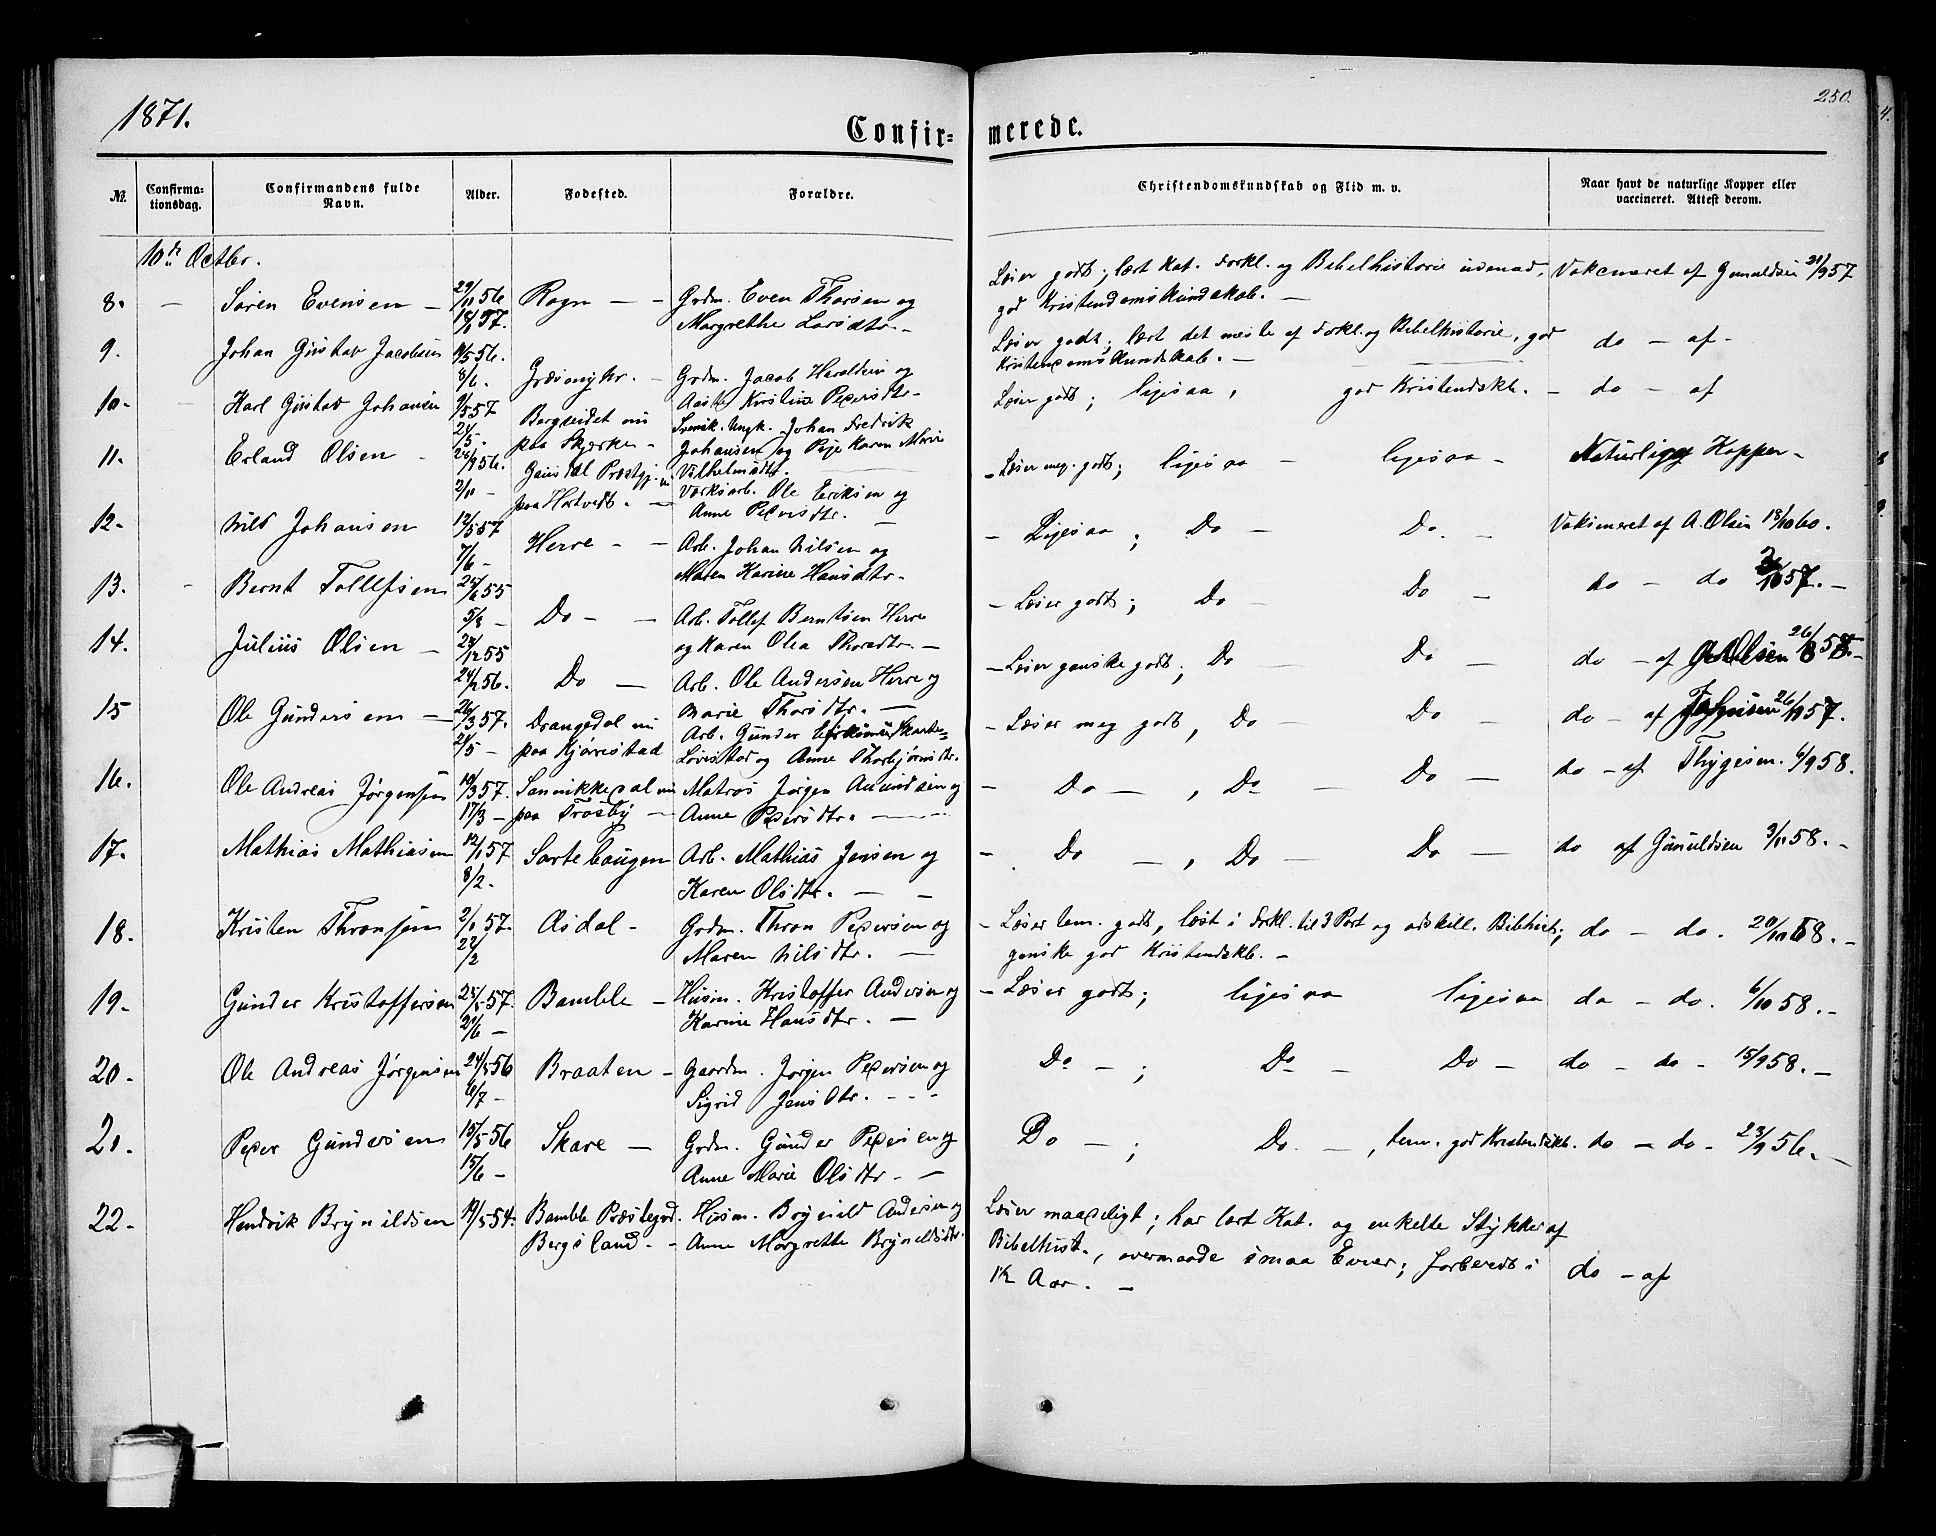 1871.
250.
Confir=
merede.
No.
Confirma-
tionsdag.
Confirmandens fulde
Navn.
Alder.
Fødested.
Forældre.
Christendomskundskab og Flid m. v.
Naar havt de naturlige Kopper eller
vaccineret. Attest derom.
10de Octbr.
8. — Søren Evensen — 29/11 56 Rogn — — Grdm. Even Thorsen og Læser godt; lært Kat. Forkl. og Bibelhistorie udenad, Vakcineret af Gunuldsen 21/9 57
18/1 57. Margrethe Larsdtr. — god Kristendomskundskab. —
9. Johan Gustav Jacobsen 9/5 56. Læser godt; lært det meste af Forkl. og Bibelhistorie, god do — af —
Kristendomskundskab. —
8/6. Grdm. Jacob Haraldsen og
10. — Karl Gustav Johansen 9/5 57 Aaste Kirstine Pedersdtr. Læser godt; ligesaa, god Kristendskb. — do — af
24/5. Johan Fredrik
11. Erland Olsen — 26/9 56. paa Johansen og Karen Marie - Læser meg. godt; ligesaa — ligesaa — Naturlige Kopper —
Vilhelmsdtr.
2/11 — paa Hatvedt. — Værksarb. Ole Eriksen og
12. Nils Johansen 12/5 57 Anne Pedersdtr. — - Ligesaa; Do — Do. — Vaksineret af A. Olsen 18/10 60.
7/6 — Herre — — Arb. Johan Nilsen og
Maren Karine Hansdtr.
13. Bernt Tollefsen 55 - Læser godt; Do — Do — do — do 57. —
5/8 — Do — — Arb. Tollef Berntsen Herre
og Karen Olea Thoredtr. —
14. Julius Olsen — 28/12 55 - Læser ganske godt; Do — Do — do — af Olsen 26/8 58. —
24/2 56. Do — Arb. Ole Andersen Herre og
Marie Thorsdtr. —
15 Ole Gundersen — 26/3 57. Drangedal nu Arb. Gunder - Læser meg godt, Do — Do — do — af 57.
21/5 — paa Kjørrestad og Anne Thorbjørnsdtr.
16. Ole Andreas Jørgensen 10/3 57. Sannikkedal nu Matros Jørgen Amundsen og - Do —, Do — Do — do — af Thygesen. 6/9 58.
17/3 — paa Trosby — Anne Pedersdtr. —
17. Mathias Mathiasen 12/1 57 Sortebaugen Arb. Mathias Jensen og - Do —, Do — Do — do af Gunuldsen 3/11 58. —
8/2. Karen Olsdtr. — —
18. Kristen Thronsen 2/1 57. Asdal — Grdm. Thron Pedersen og - Læser tem. godt, læst i Forkl. til 3 Part og adskill. Bibhist; do — do. 20/10 68. —
22/2 Maren Nilsdtr. — ganske god Kristendskb. —
19. Gunder Kristoffersen 25/5 57. Bamble — Husm. Kristoffer Andersen og - Læser godt; ligesaa ligesaa do — do. 6/10 58. —
21/6 — Karine Hansdtr. —
20. Ole Andreas Jørgensen 24/5 56 Braaten — Gaardm. Jørgen Pedersen og Do —; Do — Do — do — do — 15/9 58. —
6/7 — Sigrid Jensdtr. — — —
21. Peder Gundersen 15/5 56 Skare — Grdm. Gunder Pedersen og Do —; Do. —, tem. god Kristendskb. do — do — 23/9 56. —
15/6 — Anne Marie Olsdtr. — —
22. Hendrik Brynildsen 19/5 54. Bamble Præstegjd. Husm. Brynild Andersen og Læser maadeligt; har lært Kat. og enkelte Stykker af
Bergsland. — Anne Margrethe Brynildsdtr. Bibelhist., overmaade smaa Evner; forberedt i do — af
1½ Aar. —